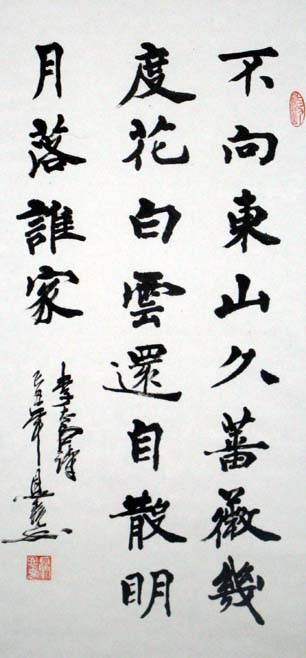 不向東山久薔薇幾
度花白雲還自散明
月落誰家
李太白詩